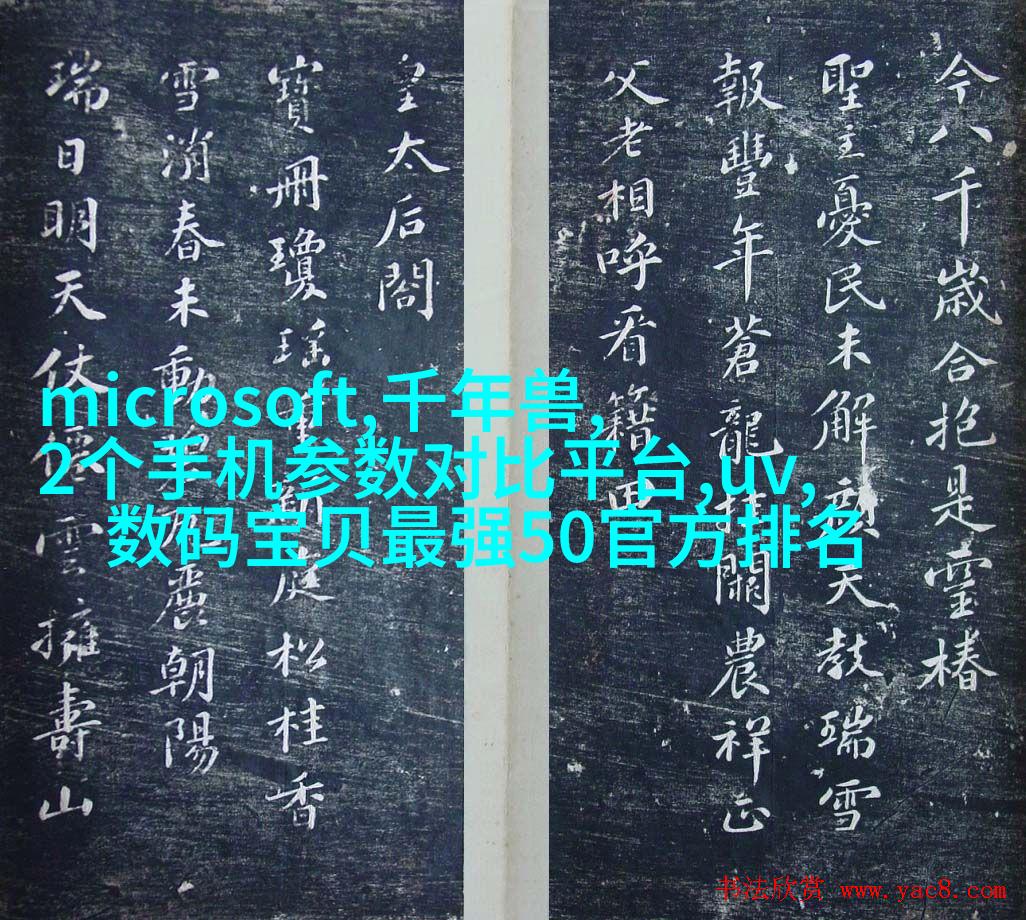 今八千歲合抱是靈椿
聖主憂民未解顏天教瑞雪
報豐年蒼龍掛闕農祥正
父老相呼看籍田
皇太后閤
寶冊瓊瑤重新庭松桂香
雪消春未動碧瓦麗朝陽
瑞日明天仗僊雲擁壽山
microsoft,千年兽,
2个手机参数对比平台,uv,
数码宝贝最强50官方排名
书法欣赏 www.yac8.com